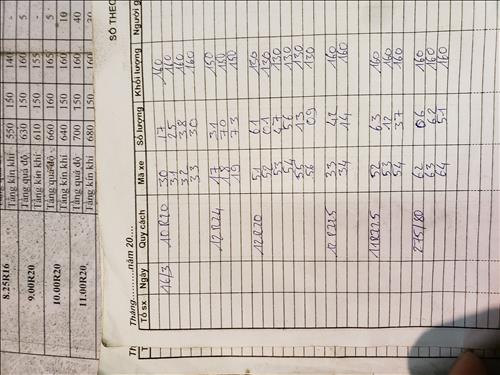 8.25R16
Tăng kín khí 550 150 140
9.00R20
Tăng quá độ 630 150 160 5
Tăng kín khí 610 150 155
10.00R20
Tăng quá độ 660 150 165 5
Tăng kín khí 640 150 160 10
11.00R20
Tăng quá độ 700 150 160 40
Tăng kín khí 680 150 160
SỔ THEO
Tháng.........năm 20....
Tổ sx Ngày Quy cách Mã xe Số lượng Khối lượng Người
16/3 10R20 30 17 160
31 25 160
32 3.8 160
33 30 160
12R24 17 3.1 150
18 70 150
19 7.3 150
12R20 51 61 130
52 0.1 130
53 47 130
54 56 130
55 13 130
56 0.9 130
12R225 33 42 160
34 14 160
11R225 52 63 160
53 12 160
54 37 160
275/80 62 0.6 160
63 6.2 160
64 5.1 160
Th
T